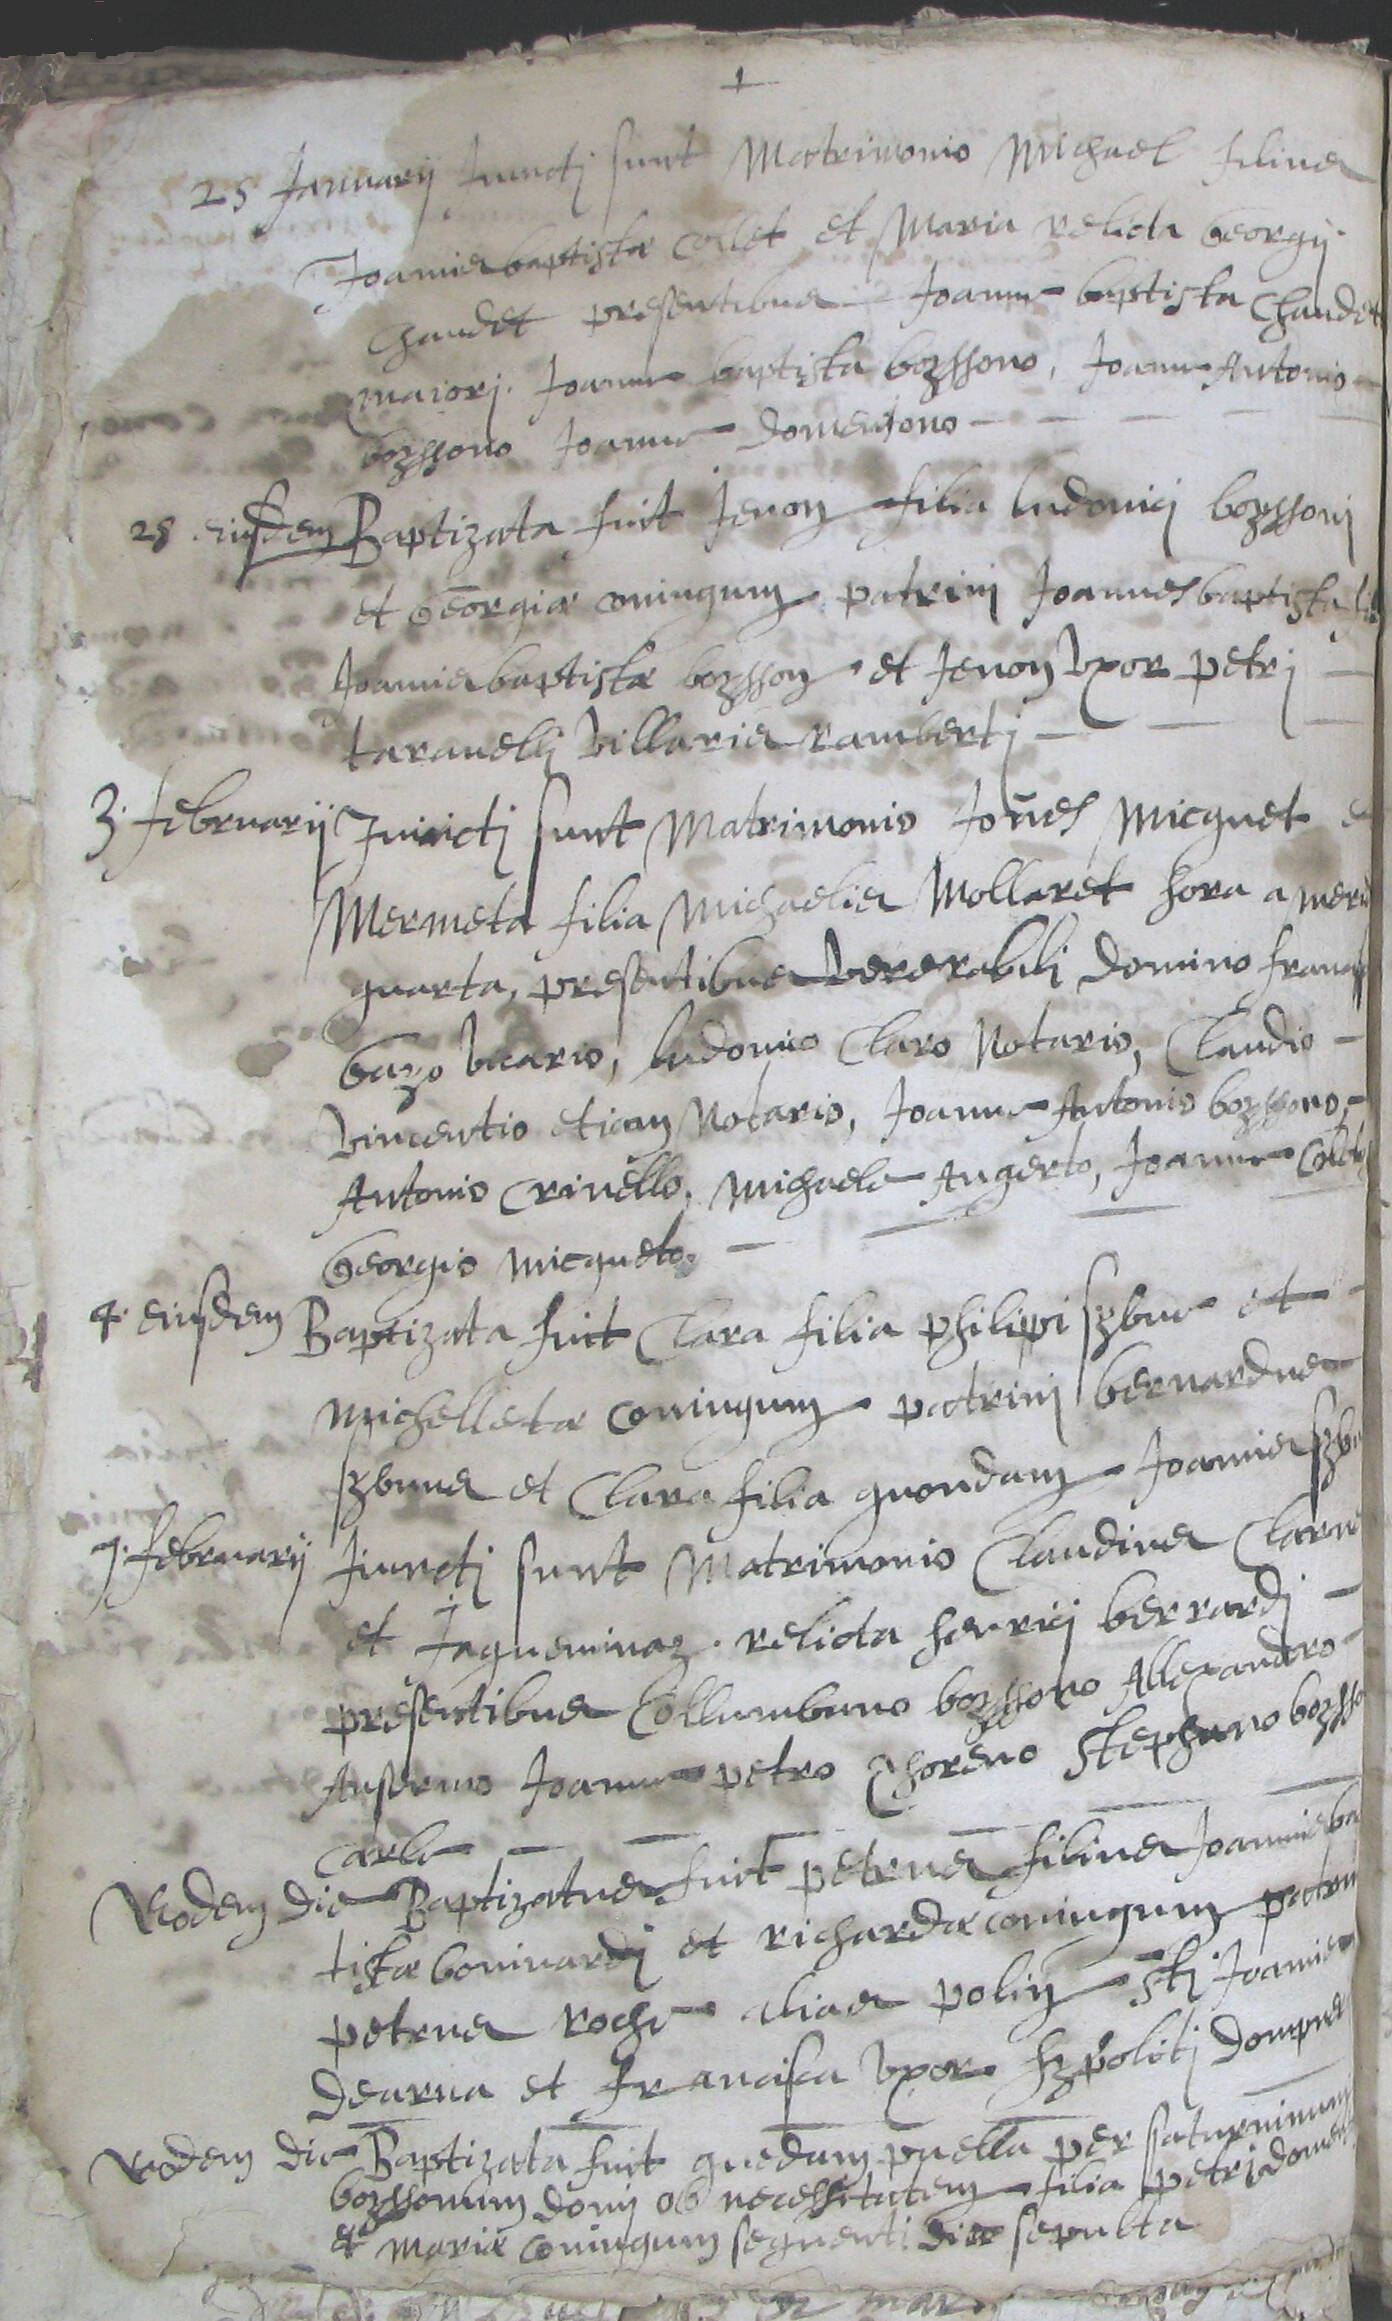 25 Januarij Juncti sunt Matrimonio Michael filius
Joannisbaptistæ Collet et Maria relicta Georgij
Chaudet presentibus Joanne baptista Chaudet
maiori. Joanne baptista bozssono, Joanne Antonio
bozssono Joanne domengono
28 eiusdem Baptizata fuit Jenon filia ludovici bozssoni
et Georgiæ coniugum patrini Joannesbaptista
Joannisbaptistæ bozsson et Jenon Vxor petri
taravelli Villaris ramberti
3. februarij Juncti sunt Matrimonio Joñes Micquet
Mermeta filia Michaelis Mollaret hora a meri
quarta, presentibus Venerabili domino
Gazo Vicario, ludovico Claro Notario, Claudio
Vincentio etiam Notario, Joanne Antonio bozssono,
Antonio Crinello, Michaele Angerlo, Joanne
Georgio Micqueto.
4. eiusdem Baptizata fuit Clara filia philippi szbue et
Michelletæ coniugum patrini bernardus
szbuus et Clara filia quondam Joannis
7. februarij Juncti sunt Matrimonio Claudius Clarus
et Jaqueminaz. relicta henrici berrardi
presentibus Collumbano bozssono Allexandro
Anselmo Joanne petro Choreno Stephano bozsso
Carle
Eodem die Baptizatus fuit petrus filius Joannisba
tistæ boninardi et richardæ coniugum patrini
petrus roche alias polin Sti Joannis
dearua et francisca Vxor hzpoliti
Eodem die Baptizata fuit quedam puella per saturninum
bozssonum domi ob necessitatem filia petri
et Mariæ coniugum sequenti die sepulta